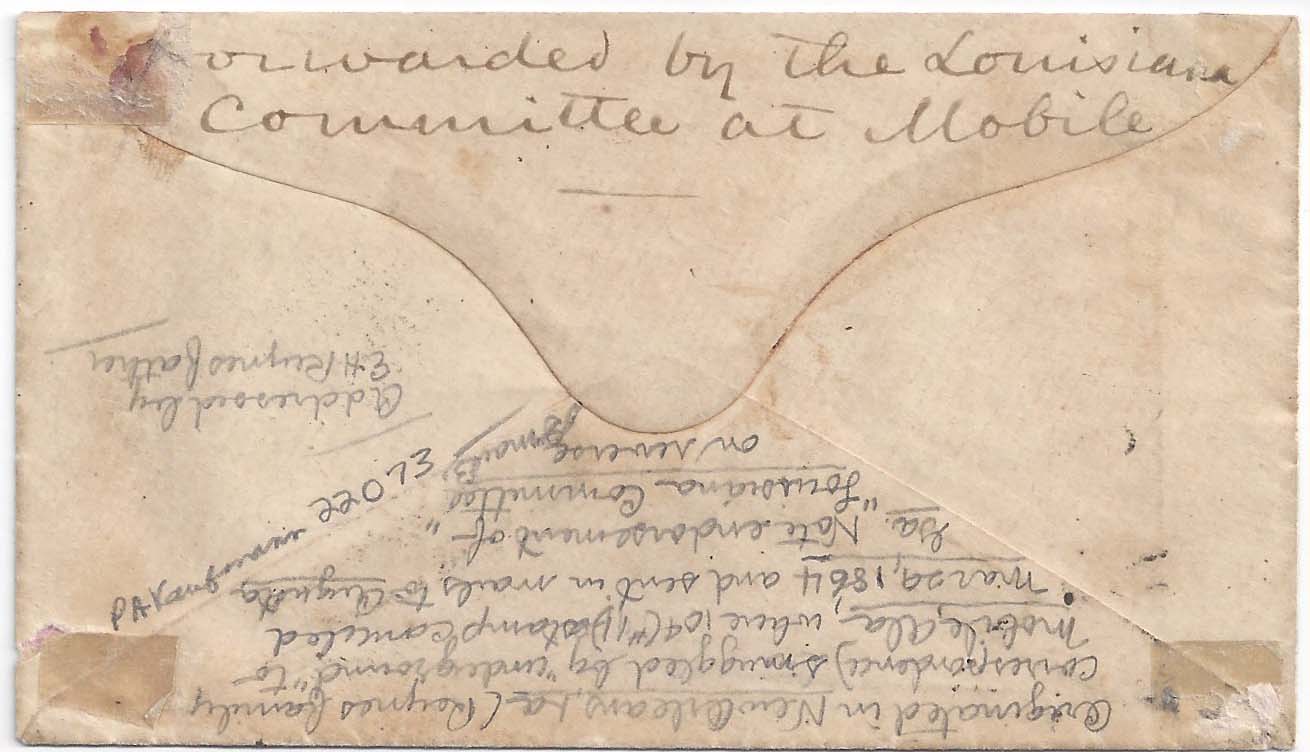 Forwarded by the Louisiana
Committee at Mobile
Originated in New Orleans, La (Reynes family
correspondence) smuggled by "underground" to
Mobile, Ala, where 10¢ (#11) stamp canceled
Mar 29, 1864 and sent in mails to Augusta
Ga. Note endorsement of
"Louisiana Committee"
on reverse
Addressed by
E H Reynes father
P A Kaufmann Dec 073